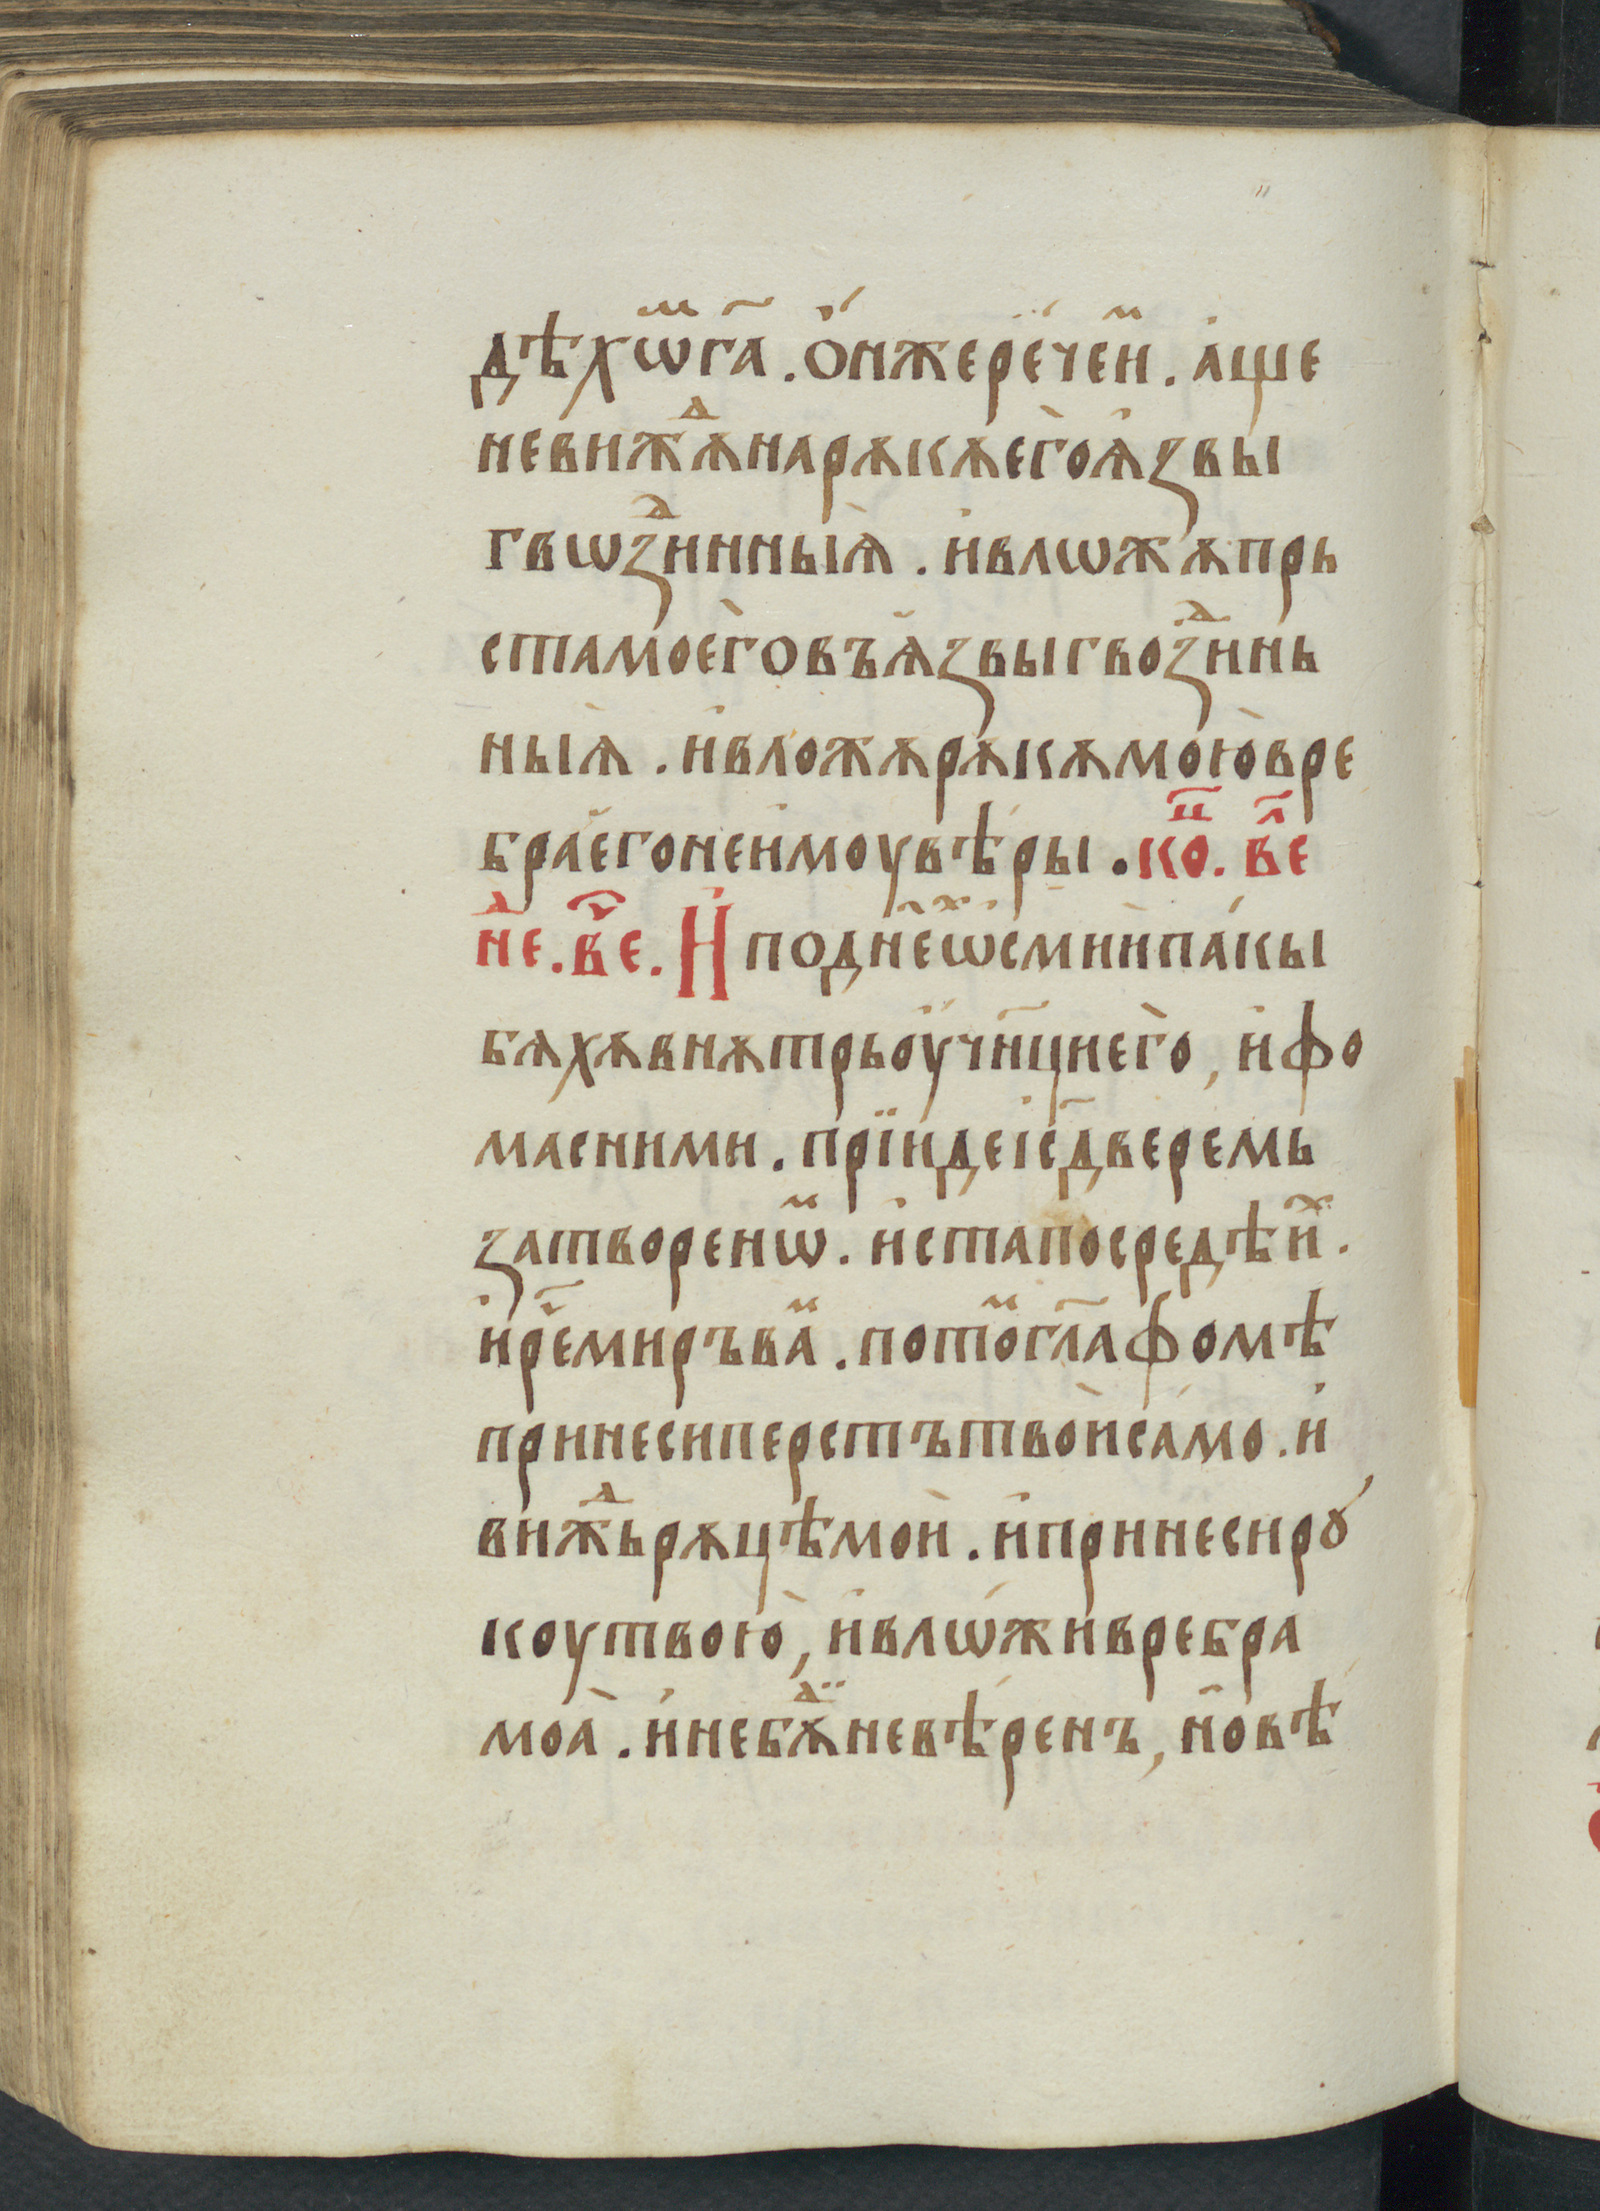 дѣхѡⷨга҃ . о҆нжерече҆иⷨ . а҆ще
невиⷤдѫнарѫкѫ҆его҆ѧзвы
гвѡзⷣинныѧ̀ . и҆влѡжѫпрь
стамоег҆овъѧ҆звыгвозⷣинь
ныѧ̀ . и҆вложѫрѫкѫмою̀вре
бра҆егонеи҆моувѣры . коⷫ҇ . веⷧ҇
неⷣ . веⷱ҇ . И҆поднехъѡсмиѝпа́кы
бѫхѫвнѫтрьоу҆чн҃циего̀ , и҆фо
масними . прїидеі҆с҃дверемь
затворенѡⷨ . и҆стапосредѣиⷯ .
и҆реⷱ҇миръваⷨ . потоⷨгл҃афомѣ
принесиперстътвоѝса́мо . и҆
виждⷣьрѫцѣмоѝ . и҆принесирꙋ
коутвою̀ , и҆влѡ́жи́вребра
моа̀ . и҆небѫⷣневѣ́ренъ , но̑вѣ